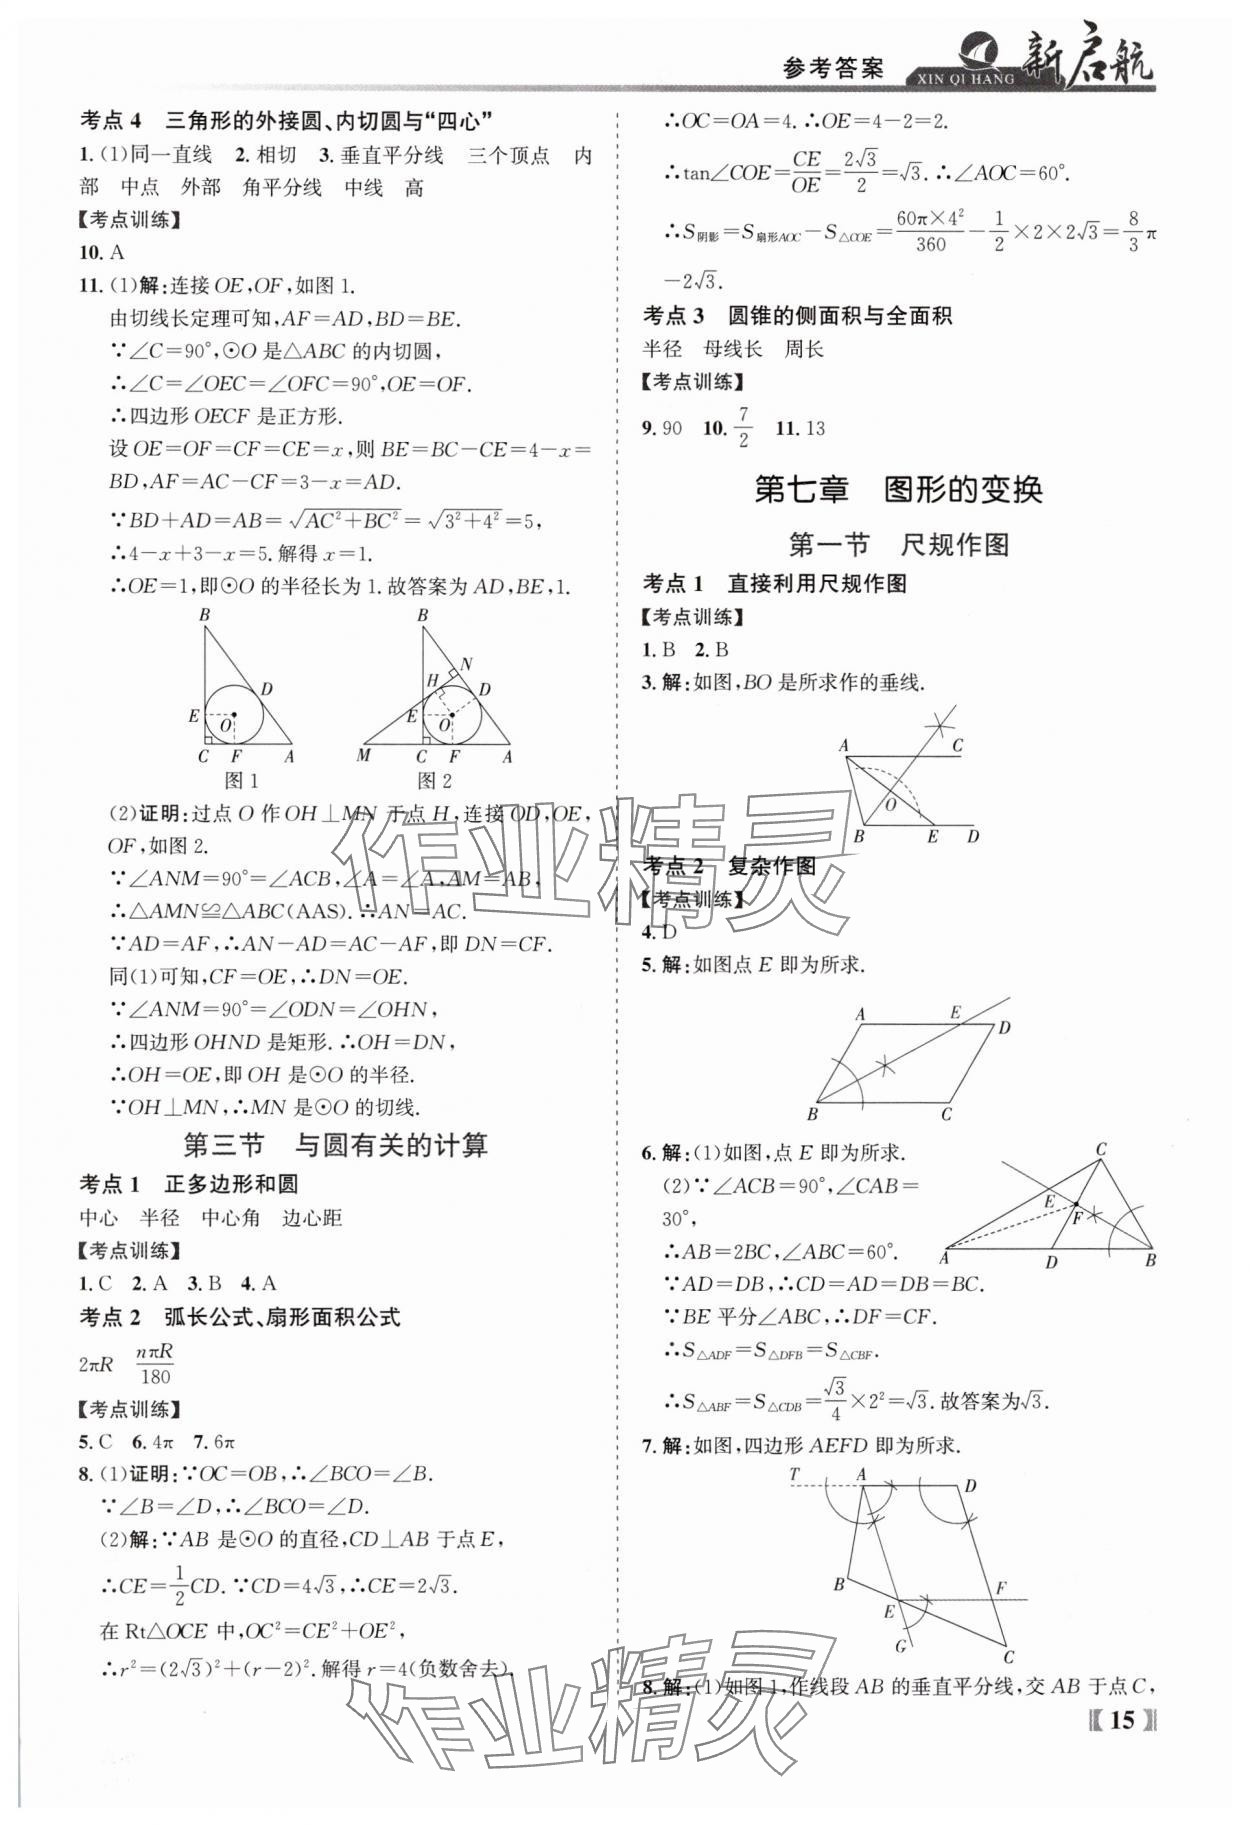 参考答案 XIN QI HANG 新启航
考点 4 三角形的外接圆、内切圆与“四心”
1. (1)同一直线 2. 相切 3. 垂直平分线 三个顶点 内
部 中点 外部 角平分线 中线 高
【考点训练】
10. A
11. (1)解:连接 OE,OF,如图 1.
由切线长定理可知,AF=AD,BD=BE.
∵∠C=90°,⊙O 是△ABC 的内切圆,
∴∠C=∠OEC=∠OFC=90°,OE=OF.
∴四边形 OECF 是正方形.
设 OE=OF=CF=CE=x,则 BE=BC-CE=4-x=
BD,AF=AC-CF=3-x=AD.
∵BD+AD=AB=√(AC²+BC²)=√(3²+4²)=5,
∴4-x+3-x=5. 解得 x=1.
∴OE=1,即⊙O 的半径长为 1. 故答案为 AD,BE,1.
B
D
E
O
C F A
图 1
B
N
H
D
E
O
M C F A
图 2
(2)证明:过点 O 作 OH⊥MN 于点 H,连接 OD,OE,
OF,如图 2.
∵∠ANM=90°=∠ACB,∠A=∠A,AM=AB,
∴△AMN≌△ABC(AAS). ∴AN=AC.
∵AD=AF,∴AN-AD=AC-AF,即 DN=CF.
同(1)可知,CF=OE,∴DN=OE.
∵∠ANM=90°=∠ODN=∠OHN,
∴四边形 OHND 是矩形. ∴OH=DN,
∴OH=OE,即 OH 是⊙O 的半径.
∵OH⊥MN,∴MN 是⊙O 的切线.
第三节 与圆有关的计算
考点 1 正多边形和圆
中心 半径 中心角 边心距
【考点训练】
1. C 2. A 3. B 4. A
考点 2 弧长公式、扇形面积公式
2πR nπR/180
【考点训练】
5. C 6. 4π 7. 6π
8. (1)证明:∵OC=OB,∴∠BCO=∠B.
∵∠B=∠D,∴∠BCO=∠D.
(2)解:∵AB 是⊙O 的直径,CD⊥AB 于点 E,
∴CE=1/2CD. ∵CD=4√3,∴CE=2√3.
在 Rt△OCE 中,OC²=CE²+OE²,
∴r²=(2√3)²+(r-2)². 解得 r=4(负数舍去).
∴OC=OA=4. ∴OE=4-2=2.
∴tan∠COE=CE/OE=2√3/2=√3. ∴∠AOC=60°.
∴S阴影=S扇形AOC-S△COE=60π×4²/360-1/2×2×2√3=8/3π
-2√3.
考点 3 圆锥的侧面积与全面积
半径 母线长 周长
【考点训练】
9. 90 10. 7/2 11. 13
第七章 图形的变换
第一节 尺规作图
考点 1 直接利用尺规作图
【考点训练】
1. B 2. B
3. 解:如图,BO 是所求作的垂线.
A C
O
B E D
考点 2 复杂作图
【考点训练】
4. D
5. 解:如图点 E 即为所求.
A E D
B C
6. 解:(1)如图,点 E 即为所求.
(2)∵∠ACB=90°,∠CAB=
30°,
∴AB=2BC,∠ABC=60°.
∵AD=DB,∴CD=AD=DB=BC.
∵BE 平分∠ABC,∴DF=CF.
∴S△ADF=S△DFB=S△CBF.
∴S△ABF=S△CDB=√3/4×2²=√3. 故答案为√3.
C
E
F
A D B
7. 解:如图,四边形 AEFD 即为所求.
T A D
B
E F
G C
8. 解:(1)如图 1,作线段 AB 的垂直平分线,交 AB 于点 C,
【15】
作业精灵
作业精灵